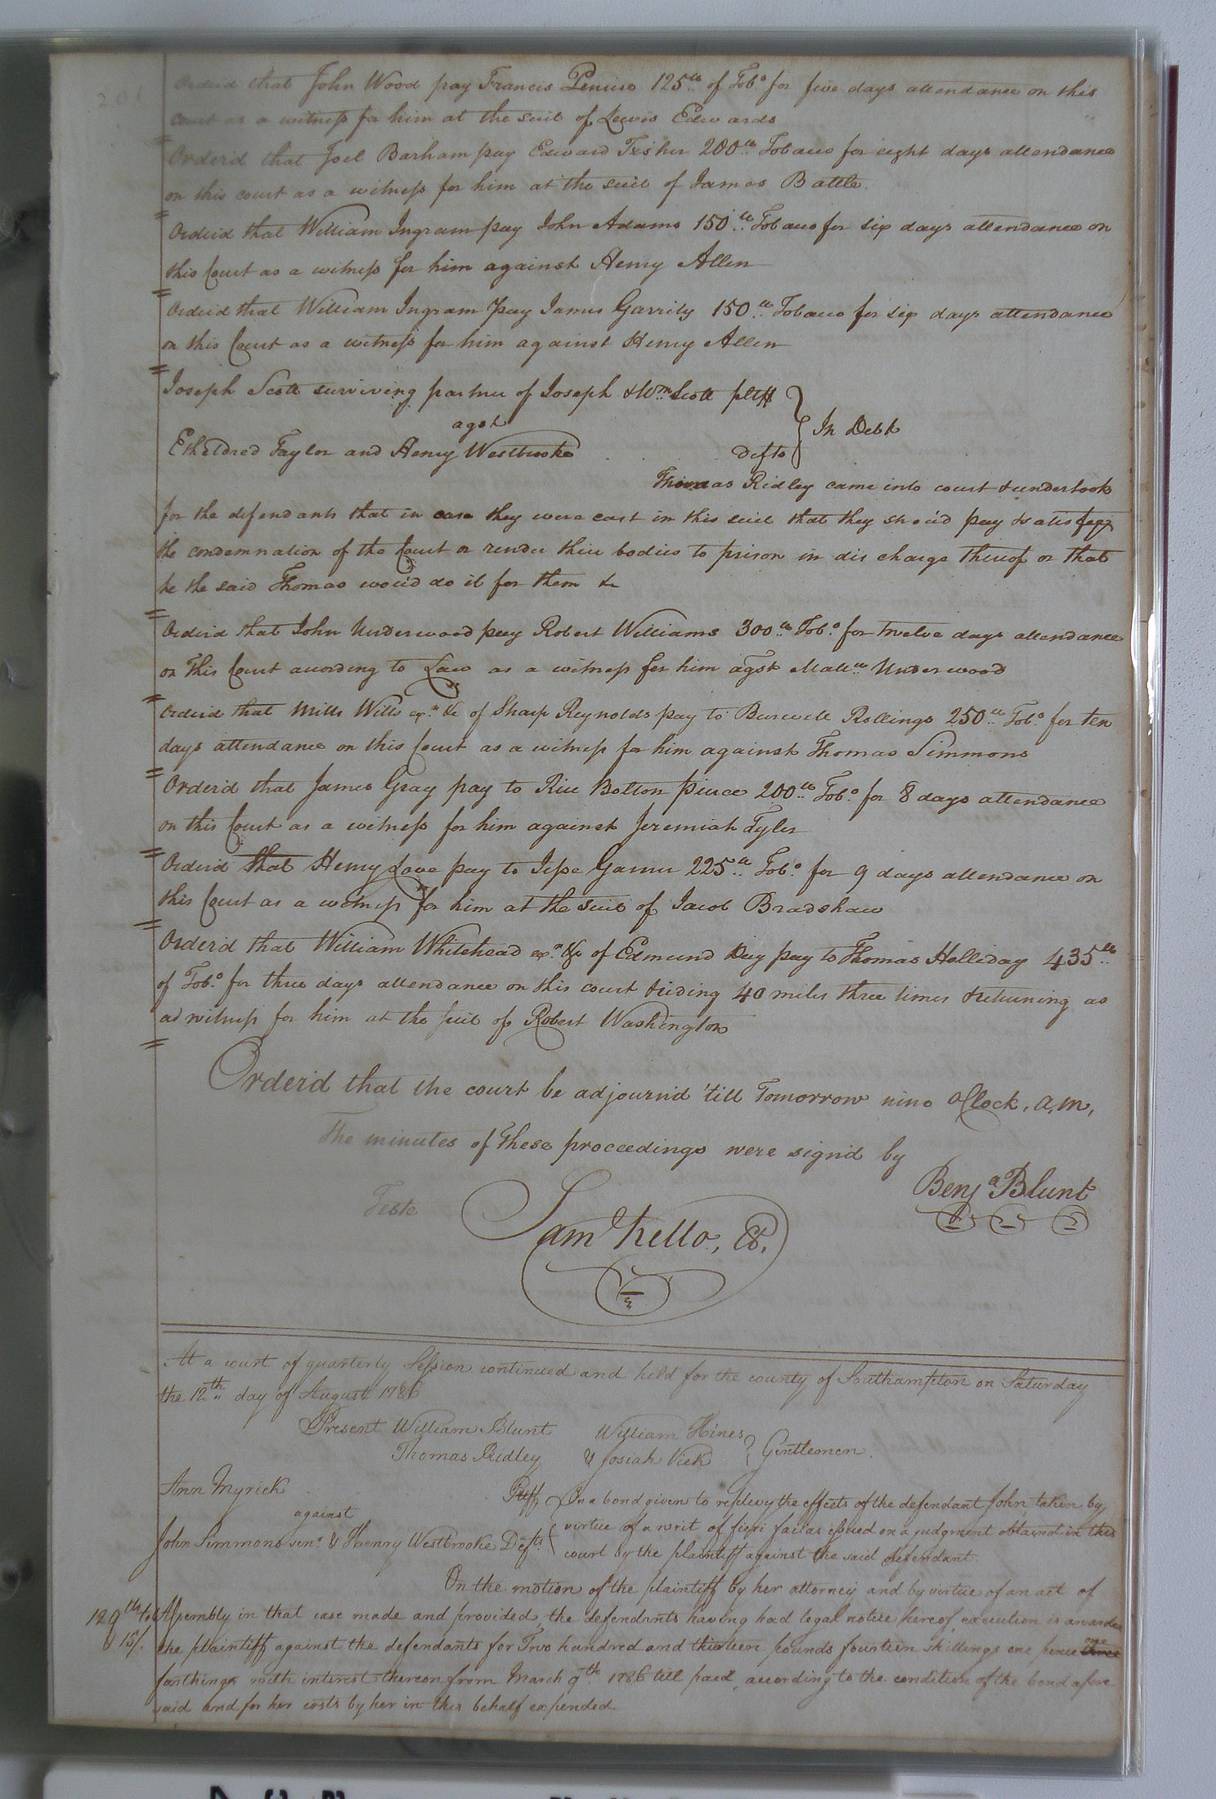 Orderid that John Wood pay Francis 125lb of Tobo for five days attendance on this
court as a witness for him at the suit of Lewis Edwards
Orderid that Joel Barham pay Edward Fisher 200lb Tobacco for eight days attendance
on this court as a witness for him at the suit of James Battle.
Orderid that William Ingram pay John Adams 150lb Tobacco for six days attendance on
this Court as a witness for him against Henry Allen
Orderid that William Ingram pay James Garrily 150lb Tobacco for six days attendance
on this Court as a witness for him against Henry Allen
Joseph Scott surviving partner of Joseph & Wm Scott pltff
agst
In Debt
Etheldred Taylor and Henry Westbrooke
Defts
Thomas Ridley came into court & undertook
for the defendants that in case they were cast in this suit that they shou'd pay & satisfy
the condemnation of the Court or render their bodies to prison in discharge thereof or that
he the said Thomas wou'd do it for them &c
Orderid that John Underwood pay Robert Williams 300lb Tobo for twelve days attendance
on this Court according to Law as a witness for him agst Mattw Underwood
Orderid that Mills Wills exr &c of Sharp Reynolds pay to Burwell Rollings 250lb Tobo for ten
days attendance on this Court as a witness for him against Thomas Simmons
Orderid that James Gray pay to Rice Bolton Pierce 200lb Tobo for 8 days attendance
on this Court as a witness for him against Jeremiah Tyler
Orderid that Henry Love pay to Jesse Garner 225lb Tobo for 9 days attendance on
this Court as a witness for him at the suit of Jacob Bradshaw
Order'd that William Whitehead exr &c of Edmund Day pay to Thomas Holliday 435lb
of Tobo for three days attendance on this court & riding 40 miles three times & returning as
ad witness for him at the suit of Robert Washington
Order'd that the court be adjourn'd 'till Tomorrow nine oClock, a,m,
The minutes of these proceedings were sign'd by
Benja Blunt
Teste
Saml Kello, Ck.
At a court of quarterly Session continued and held for the county of Southampton on Saturday
the 12th day of August 1786
Present William Blunt William Hines
Thomas Ridley & Josiah Vick Gentlemen.
Ann Myrick Pltff
against
John Simmons senr & Henry Westbrooke Defts
On a bond given to replevy the effects of the defendant John taken by
virtue of a writ of fieri facias issued on a judgment obtained in this
court by the plaintiff against the said defendant.
On the motion of the plaintiff by her attorney and by virtue of an act of
Assembly in that case made and provided, the defendants having had legal notice hereof, execution is awarded
129lb to
15/.
the plaintiff against the defendants for Two hundred and thirteen pounds fourteen shillings one pence three one
farthings with interest thereon from March 9th 1786 till paid, according to the condition of the bond afore
said and for her costs by her in this behalf expended.